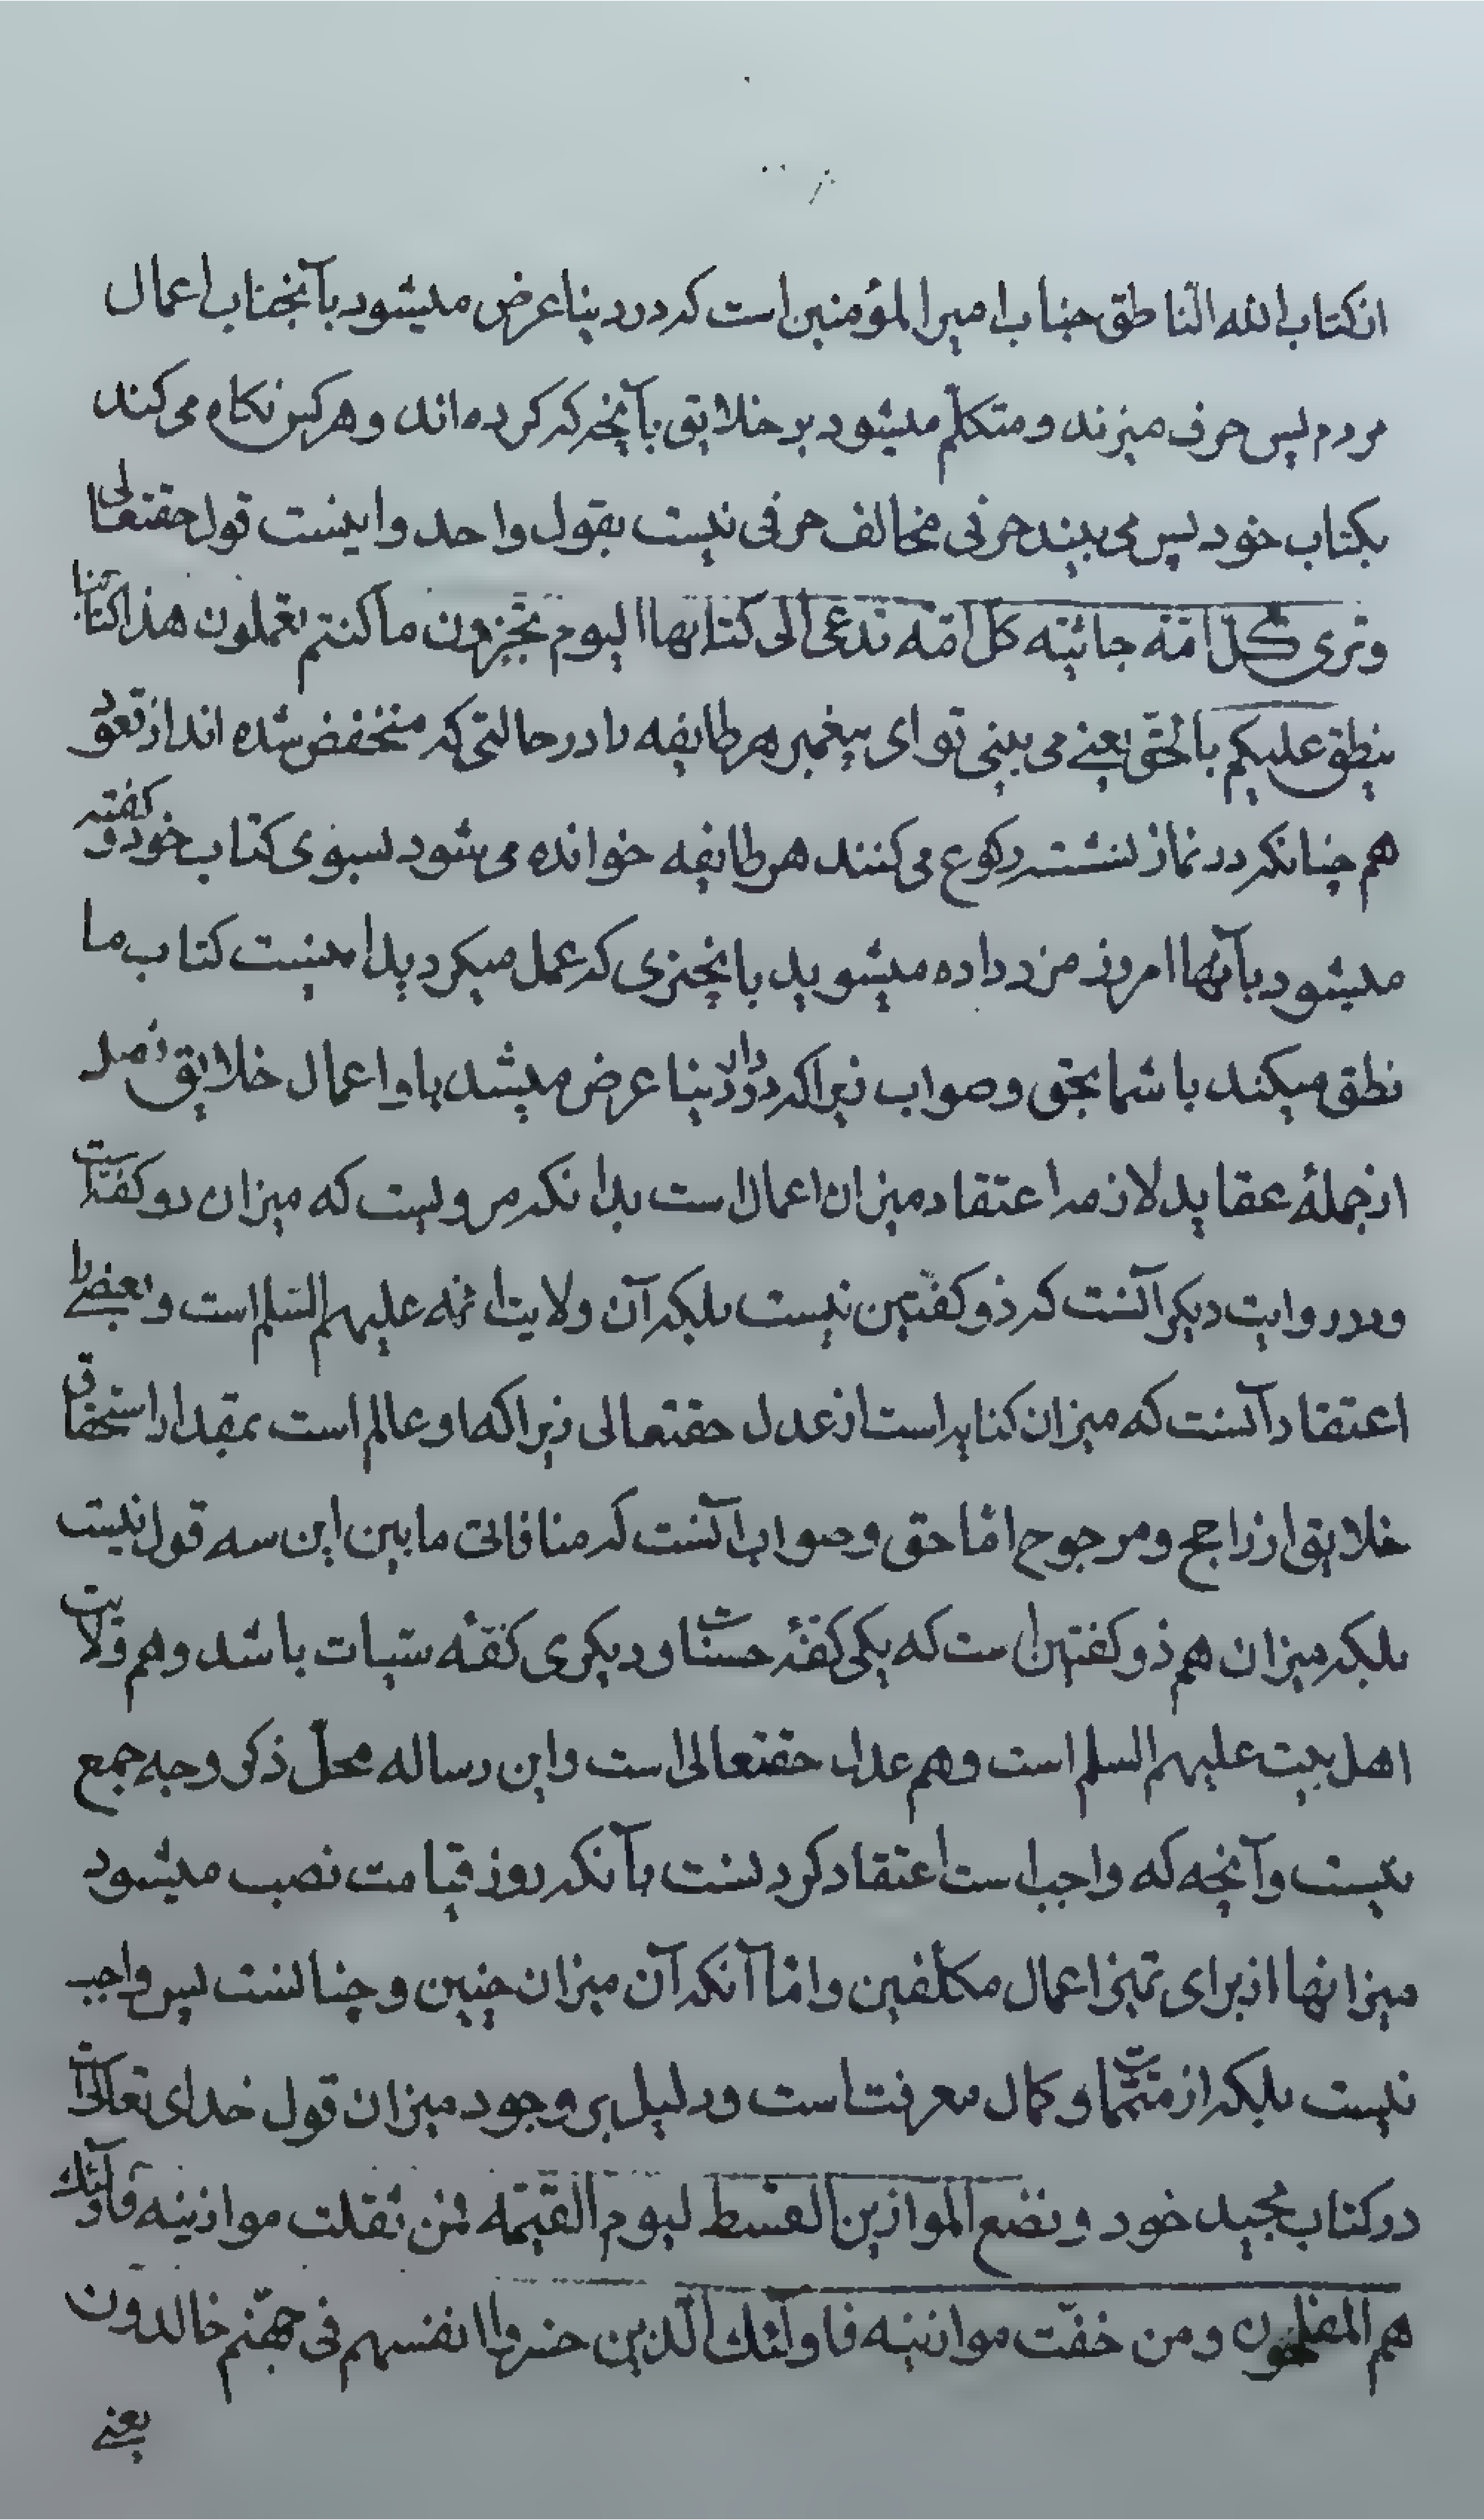 ان کتاب الله الناطق جناب امیرالمؤمنین است که در دنیا عرض میشود بآنجناب اعمال
مردم پس حرف میزند و متکلّم میشود بر خلایق بآنچه که کرده‌اند و هرکس نکاه می‌کند
بکتاب خود پس می‌بیند حرفی مخالف حرفی نیست بقول واحد و اینست قول حقتعالی
وتری کلّ امّة جاثیّة کل امّة تدعی الی کتابها الیوم تجزون ما کنتم تعملون هذا کتابنا
ینطق علیکم بالحقّ یعنی می‌بینی تو ای پیغمبر هر طایفه را در حالتی که منخفض شده‌اند از قعود
هم چنانکه در نماز نشسته رکوع می‌کنند هر طایفه خوانده می‌شود بسوی کتاب خود و کفته
میشود بآنها امروز مزد داده میشوید بانچیزی که عمل میکردید اینست کتاب ما
نطق میکند با شما بحق و صواب زیرا که در دار دنیا عرض میشد باو اعمال خلایق
از جملهٔ عقاید لازمه اعتقاد میزان اعمال است بدانکه مرویست که میزان دو کفّه است
ودر روایت دیکر آنست که ذو کفّتین نیست بلکه آن ولایت ائمه علیهم السّلم است و بعضی را
اعتقاد آنست که میزان کنایه است از عدل حقتعالی زیرا که او عالم است بمقدار استحقاق
خلایق از راجح و مرجوح امّا حق و صواب آنست که منافاتی مابین این سه قول نیست
بلکه میزان هم ذو کفتین است که یکی کفّهٔ حسنات و دیکری کفّه سیّات باشد و هم ولایت
اهل بیت علیهم السلم است و هم عدل حقتعالی است و این رساله محلّ ذکر وجه جمع
نیست و آنچه که واجب است اعتقاد کردنست بآنکه روز قیامت نصب میشود
میزانها از برای تمیز اعمال مکلّفین و امّا آنکه آن میزان چنین و چنانست پس واجب
نیست بلکه از متمّمات و کمال معرفت است و دلیل بر وجود میزان قول خدای تعالی است
در کتاب مجید خود و نضع الموازین القسط لیوم القیمة فمن ثقلت موازینه فاولئک
هم المفلحون و من خفّت موازینه فاولئک الّذین خسروا انفسهم فی جهنّم خالدون
یعنی